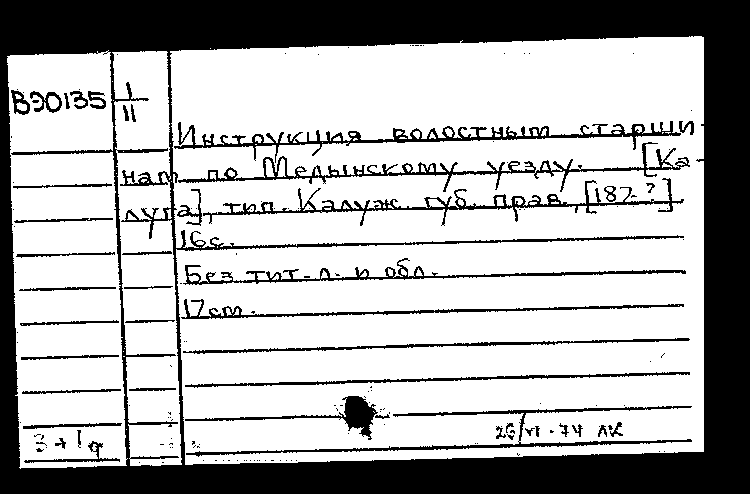 ВЭ0135 I/II
Инструкция волостным старши-
нам по Медынскому уезду. [Ка-
луга], тип. Калуж. губ. прав., [187-?].
16с.
Без тит. л. и обл.
17см.
26/VI-74 ЛК